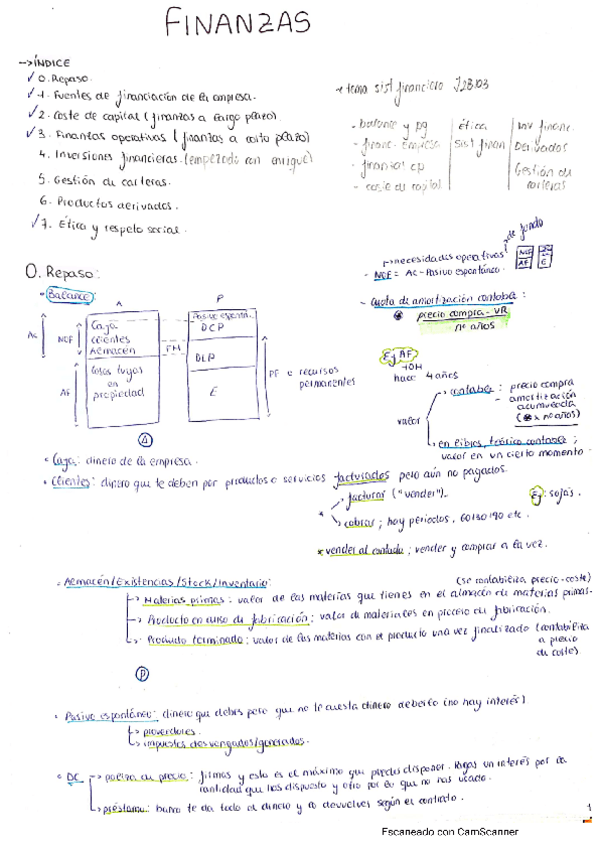 FINANZAS
→ÍNDICE
✓ 0. Repaso.
✓ 1. Fuentes de financiación de la empresa.
✓ 2. Coste de capital (finanzas a largo plazo)
✓ 3. Finanzas operativas (finanzas a corto plazo)
4. Inversiones financieras. (empezado con enrique)
5. Gestión de carteras.
6. Productos derivados.
✓ 7. Ética y respeto social.
* tema sist financiero J28/03
- balance y pg | Ética | Inv financ.
- financ. Empresa | Sist finan | Derivados
- finanzas cp | Gestión de carteras
- coste de capital
0. Repaso:
- Balance:
A
P
AC
NOF
Caja
clientes
Almacén
FM
Pasivo espontá.
DCP
AF
Cosas tuyas
en
propiedad
DLP
E
PF o recursos
permanentes
→necesidades operativas de fondo
- NOF = AC - Pasivo espontáneo.
NOF
AF
E
- Cuota de amortización contable:
precio compra - VR
nº años
Ej AF
hace 4 años
valor
contable: precio compra
- amortización
acumulada
(x nº años)
en libros, teórico contable;
valor en un cierto momento
A
• Caja: dinero de la empresa.
• Clientes: dinero que te deben por productos o servicios facturados pero aún no pagados.
* facturar ("vender").
Ej: sojas.
cobrar; hay periodos, 60/30/90 etc.
* vender al contado; vender y comprar a la vez.
• Almacén/Existencias/Stock/Inventario:
(se contabiliza precio-coste)
→ Materias primas: valor de las materias que tienes en el almacén de materias primas.
→ Producto en curso de fabricación: valor de materiales en proceso de fabricación.
→ Producto terminado: valor de las materias con el producto una vez finalizado (contabiliza
a precio
de coste)
P
• Pasivo espontáneo: dinero que debes pero que no te cuesta dinero deberlo (no hay interés)
→ proveedores.
→ impuestos devengados/generados.
• DC
→ póliza de: firmas y esto es el máximo que puedes disponer. Pagas un interés por la
cantidad que has dispuesto y otro por lo que no has usado.
→ préstamo: banco te da todo el dinero y lo devuelves según el contrato.
1
Escaneado con CamScanner